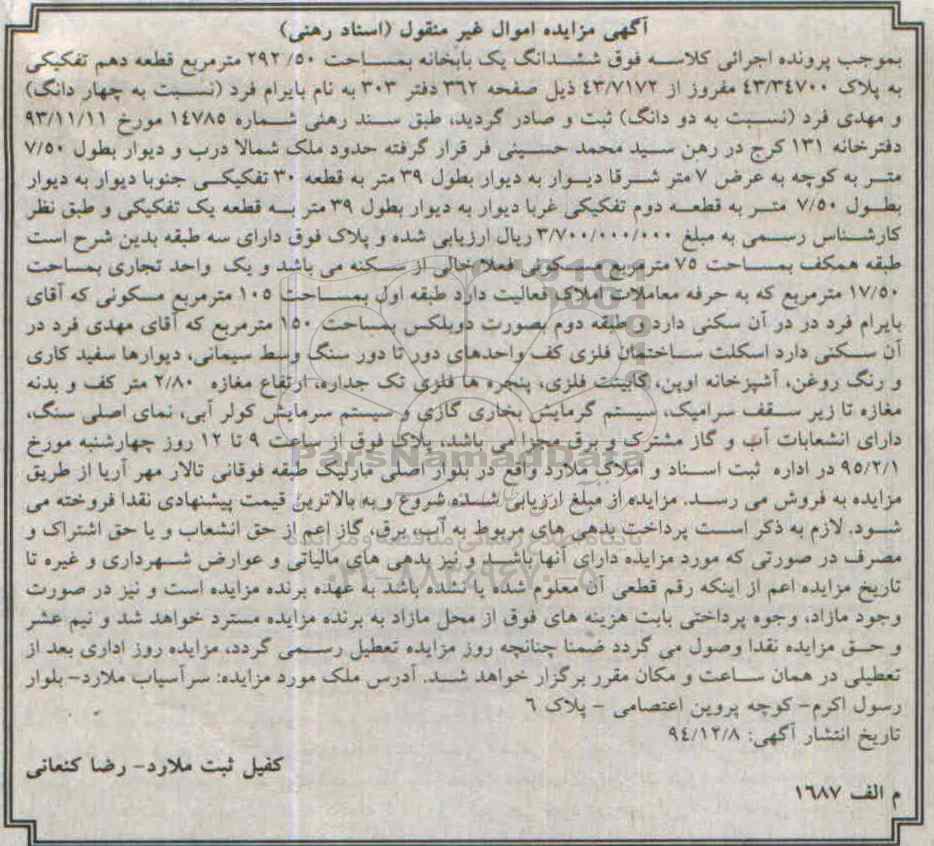 آگهی مزایده اموال غیر منقول (اسناد رهنی)
بموجب پرونده اجرائی کلاسه فوق ششدانگ یک بابخانه بمساحت ۲۹۲/۵۰ مترمربع قطعه دهم تفکیکی
به پلاک ۴۳/۳۴۷۰۰ مفروز از ۴۳/۷۱۷۲ ذیل صفحه ۳۶۲ دفتر ۳۰۳ به نام بایرام فرد (نسبت به چهار دانگ)
و مهدی فرد (نسبت به دو دانگ) ثبت و صادر گردید، طبق سند رهنی شماره ۱٤۷۸۵ مورخ ۹۳/۱۱/۱۱
دفترخانه ۱۳۱ کرج در رهن سید محمد حسینی فر قرار گرفته حدود ملک شمالا درب و دیوار بطول ۷/۵۰
متر به کوچه به عرض ۷ متر شرقا دیوار به دیوار بطول ۳۹ متر به قطعه ۳۰ تفکیکی جنوبا دیوار به دیوار
بطول ۷/۵۰ متر به قطعه دوم تفکیکی غربا دیوار به دیوار بطول ۳۹ متر به قطعه یک تفکیکی و طبق نظر
کارشناس رسمی به مبلغ ۳/۷۰۰/۰۰۰/۰۰۰ ریال ارزیابی شده و پلاک فوق دارای سه طبقه بدین شرح است
طبقه همکف بمساحت ۷۵ مترمربع مسکونی فعلا خالی از سکنه می باشد و یک واحد تجاری بمساحت
۱۷/۵۰ مترمربع که به حرفه معاملات املاک فعالیت دارد طبقه اول بمساحت ۱۰۵ مترمربع مسکونی که آقای
بایرام فرد در در آن سکنی دارد و طبقه دوم بصورت دوبلکس بمساحت ۱۵۰ مترمربع که آقای مهدی فرد در
آن سکنی دارد اسکلت ساختمان فلزی کف واحدهای دور تا دور سنگ وسط سیمانی، دیوارها سفید کاری
و رنگ روغن، آشپزخانه اوپن، کابینت فلزی، پنجره ها فلزی تک جداره، ارتفاع مغازه ۲/۸۰ متر کف و بدنه
مغازه تا زیر سقف سرامیک، سیستم گرمایش بخاری گازی و سیستم سرمایش کولر آبی، نمای اصلی سنگ،
دارای انشعابات آب و گاز مشترک و برق مجزا می باشد، پلاک فوق از ساعت ۹ تا ۱۲ روز چهارشنبه مورخ
۹۵/۲/۱ در اداره ثبت اسناد و املاک ملارد واقع در بلوار اصلی مارلیک طبقه فوقانی تالار مهر آریا از طریق
مزایده به فروش می رسد. مزایده از مبلغ ارزیابی شده شروع و به بالاترین قیمت پیشنهادی نقدا فروخته می
شود. لازم به ذکر است پرداخت بدهی های مربوط به آب، برق، گاز اعم از حق انشعاب و یا حق اشتراک و
مصرف در صورتی که مورد مزایده دارای آنها باشد و نیز بدهی های مالیاتی و عوارض شهرداری و غیره تا
تاریخ مزایده اعم از اینکه رقم قطعی آن معلوم شده یا نشده باشد به عهده برنده مزایده است و نیز در صورت
وجود مازاد، وجوه پرداختی بابت هزینه های فوق از محل مازاد به برنده مزایده مسترد خواهد شد و نیم عشر
و حق مزایده نقدا وصول می گردد ضمنا چنانچه روز مزایده تعطیل رسمی گردد، مزایده روز اداری بعد از
تعطیلی در همان ساعت و مکان مقرر برگزار خواهد شد. آدرس ملک مورد مزایده: سرآسیاب ملارد- بلوار
رسول اکرم- کوچه پروین اعتصامی - پلاک ٦
تاریخ انتشار آگهی: ۹٤/۱۲/۸
کفیل ثبت ملارد- رضا کنعانی
م الف ۱٦۸۷
ParsNamadData